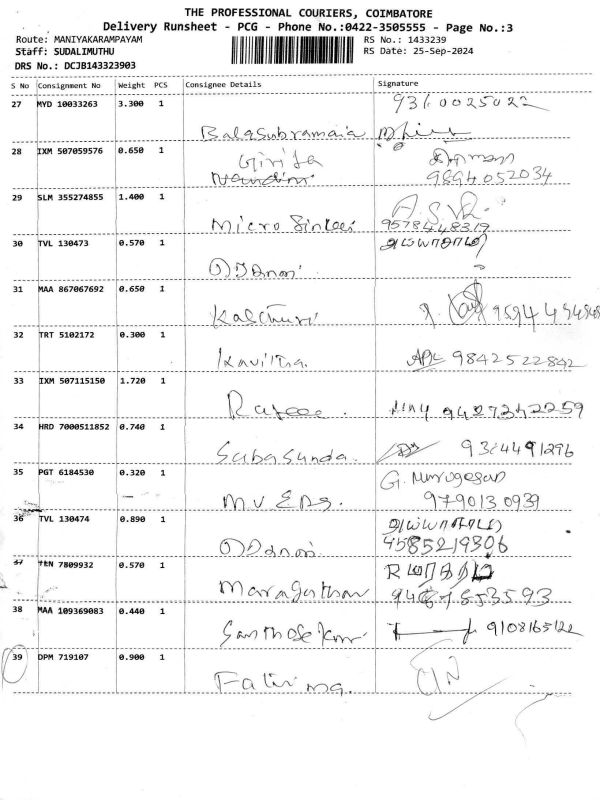 THE PROFESSIONAL COURIERS, COIMBATORE
Delivery Runsheet - PCG - Phone No.:0422-3505555 - Page No.:3
Route: MANIYAKARAMPAYAM RS No.: 1433239
Staff: SUDALIMUTHU RS Date: 25-Sep-2024
DRS No.: DCJB143323903
S No Consignment No Weight PCS Consignee Details Signature
27 MYD 10033263 3.300 1
Balasubramaia
28 IXM 507059576 0.650 1 Girija
Nandini 9894052034
29 SLM 355274855 1.400 1
Micro 9578448319
30 TVL 130473 0.570 1 அய்யாசாமி
31 MAA 867067692 0.650 1
Kalthuri
32 TRT 5102172 0.300 1
Kavitha. 9842522842
33 IXM 507115150 1.720 1
9427342259
34 HRD 7000511852 0.740 1
Subasunda. 9364491296
35 PGT 6184530 0.320 1 G. Murugesan
M.V Eng. 9790130939
36 TVL 130474 0.890 1 அய்யாசாமி
9585219306
37 TEN 7809932 0.570 1
Maragathan
38 MAA 109369083 0.440 1
Santhosekumar 9108165122
39 DPM 719107 0.900 1